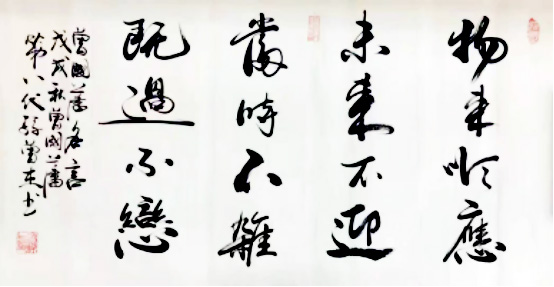 物来順應
未来不迎
當時不雜
既過不戀
曾國藩名言
戊戌秋曾國藩
第八代孫曾